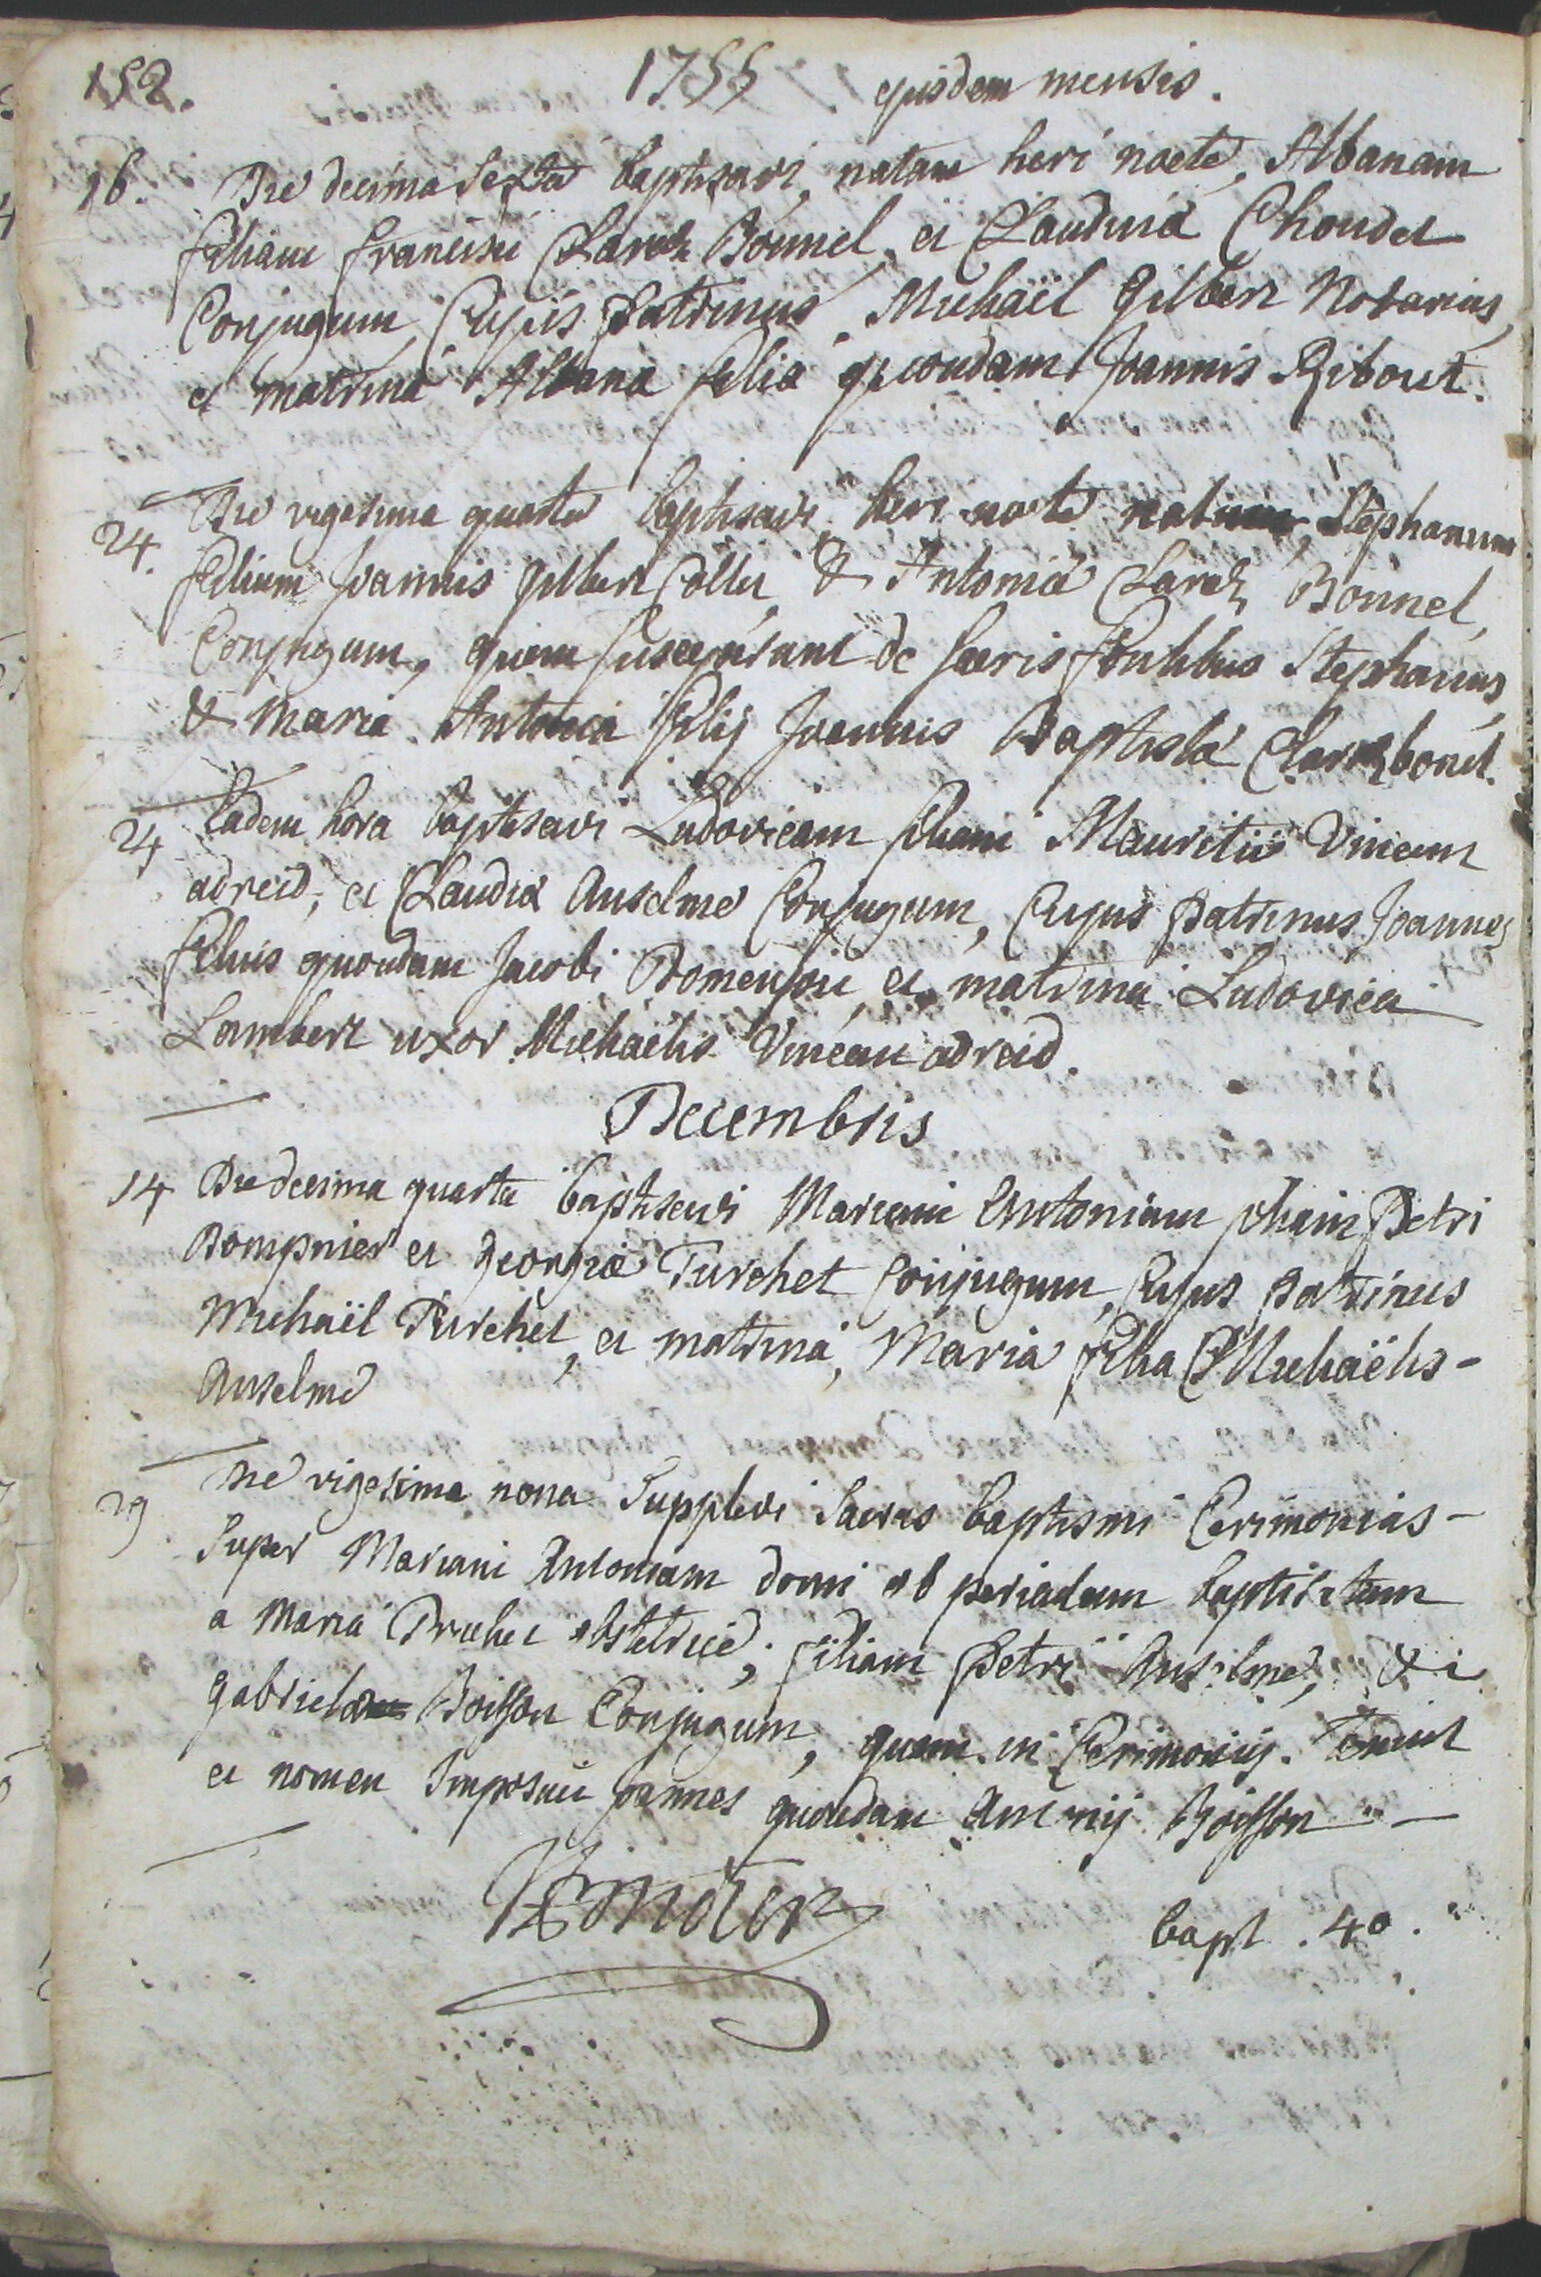 152. 1755 ejusdem mensis.
16. Die decima sexta baptisavi, natam heri nocte, Albanam
filiam francisci Claraz Bonnel, et Claudiæ Choudet
Conjugum, Cujus Patrinus, Michaël Gilbert Notarius,
et matrina Albana filia quondam Joannis Ribout.
24. Die vigesima quarta baptisavi heri nocte natum, Stephanum
filium Joannis gilbert Collet, & Antoniæ Claraz Bonnel,
Conjugum, quem susceperunt de sacris fontibus Stephanus,
& Maria Antonia filij Joannis Baptistæ Claraz bonel.
24 Eadem hora baptisavi Ludovicam filiam Mauritii Vincent
adreid, et Claudiæ Anselme Conjugum, Cujus patrinus Joannes
filius quondam Jacobi Domenjou et matrina Ludovica
Lambert uxor Michaëlis Vincent adreid.
Decembris
14 Die decima quarta baptisavi Mariam Antoniam filiam Petri
Dompnier et georgiæ Turchet Conjugum, Cujus patrinus
Michaël Turchet, et matrina, Maria filia Michaëlis -
Anselme
29 Die vigesima nona Supplevi Sacras baptismi Cerimonias -
Super Mariam Antoniam domi ob periculum baptisatam
a Maria Truchet obstetrice, filiam petri Anselme, &
gabrielæ Boisson Conjugum, quam in Cerimonijs tenuit
et nomen Imposuit Joannes quondam Antonij Boisson -
bapt. 40.